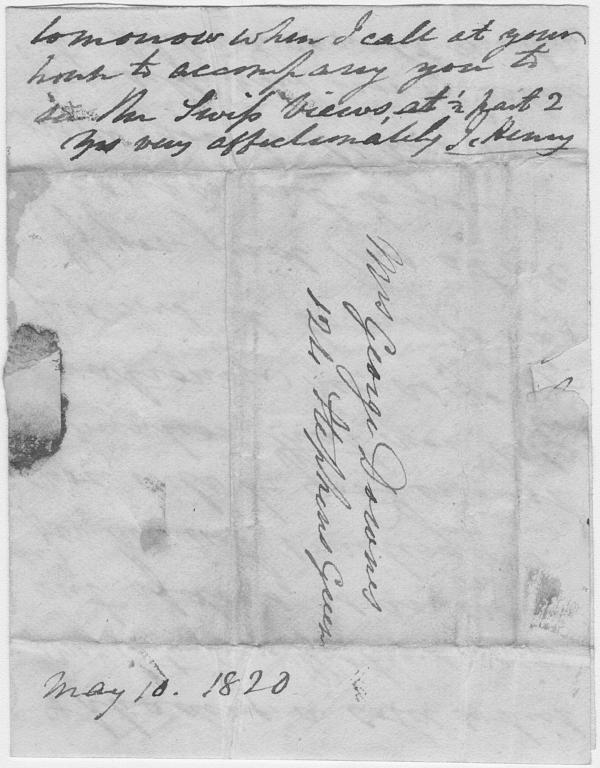 tomorrow when I call at your
house to accompany you to
see the Swiss Views, at ½ past 2
Yrs very affectionately J. Henry
Mrs George Downes
124 Stephens Green
May 10. 1820